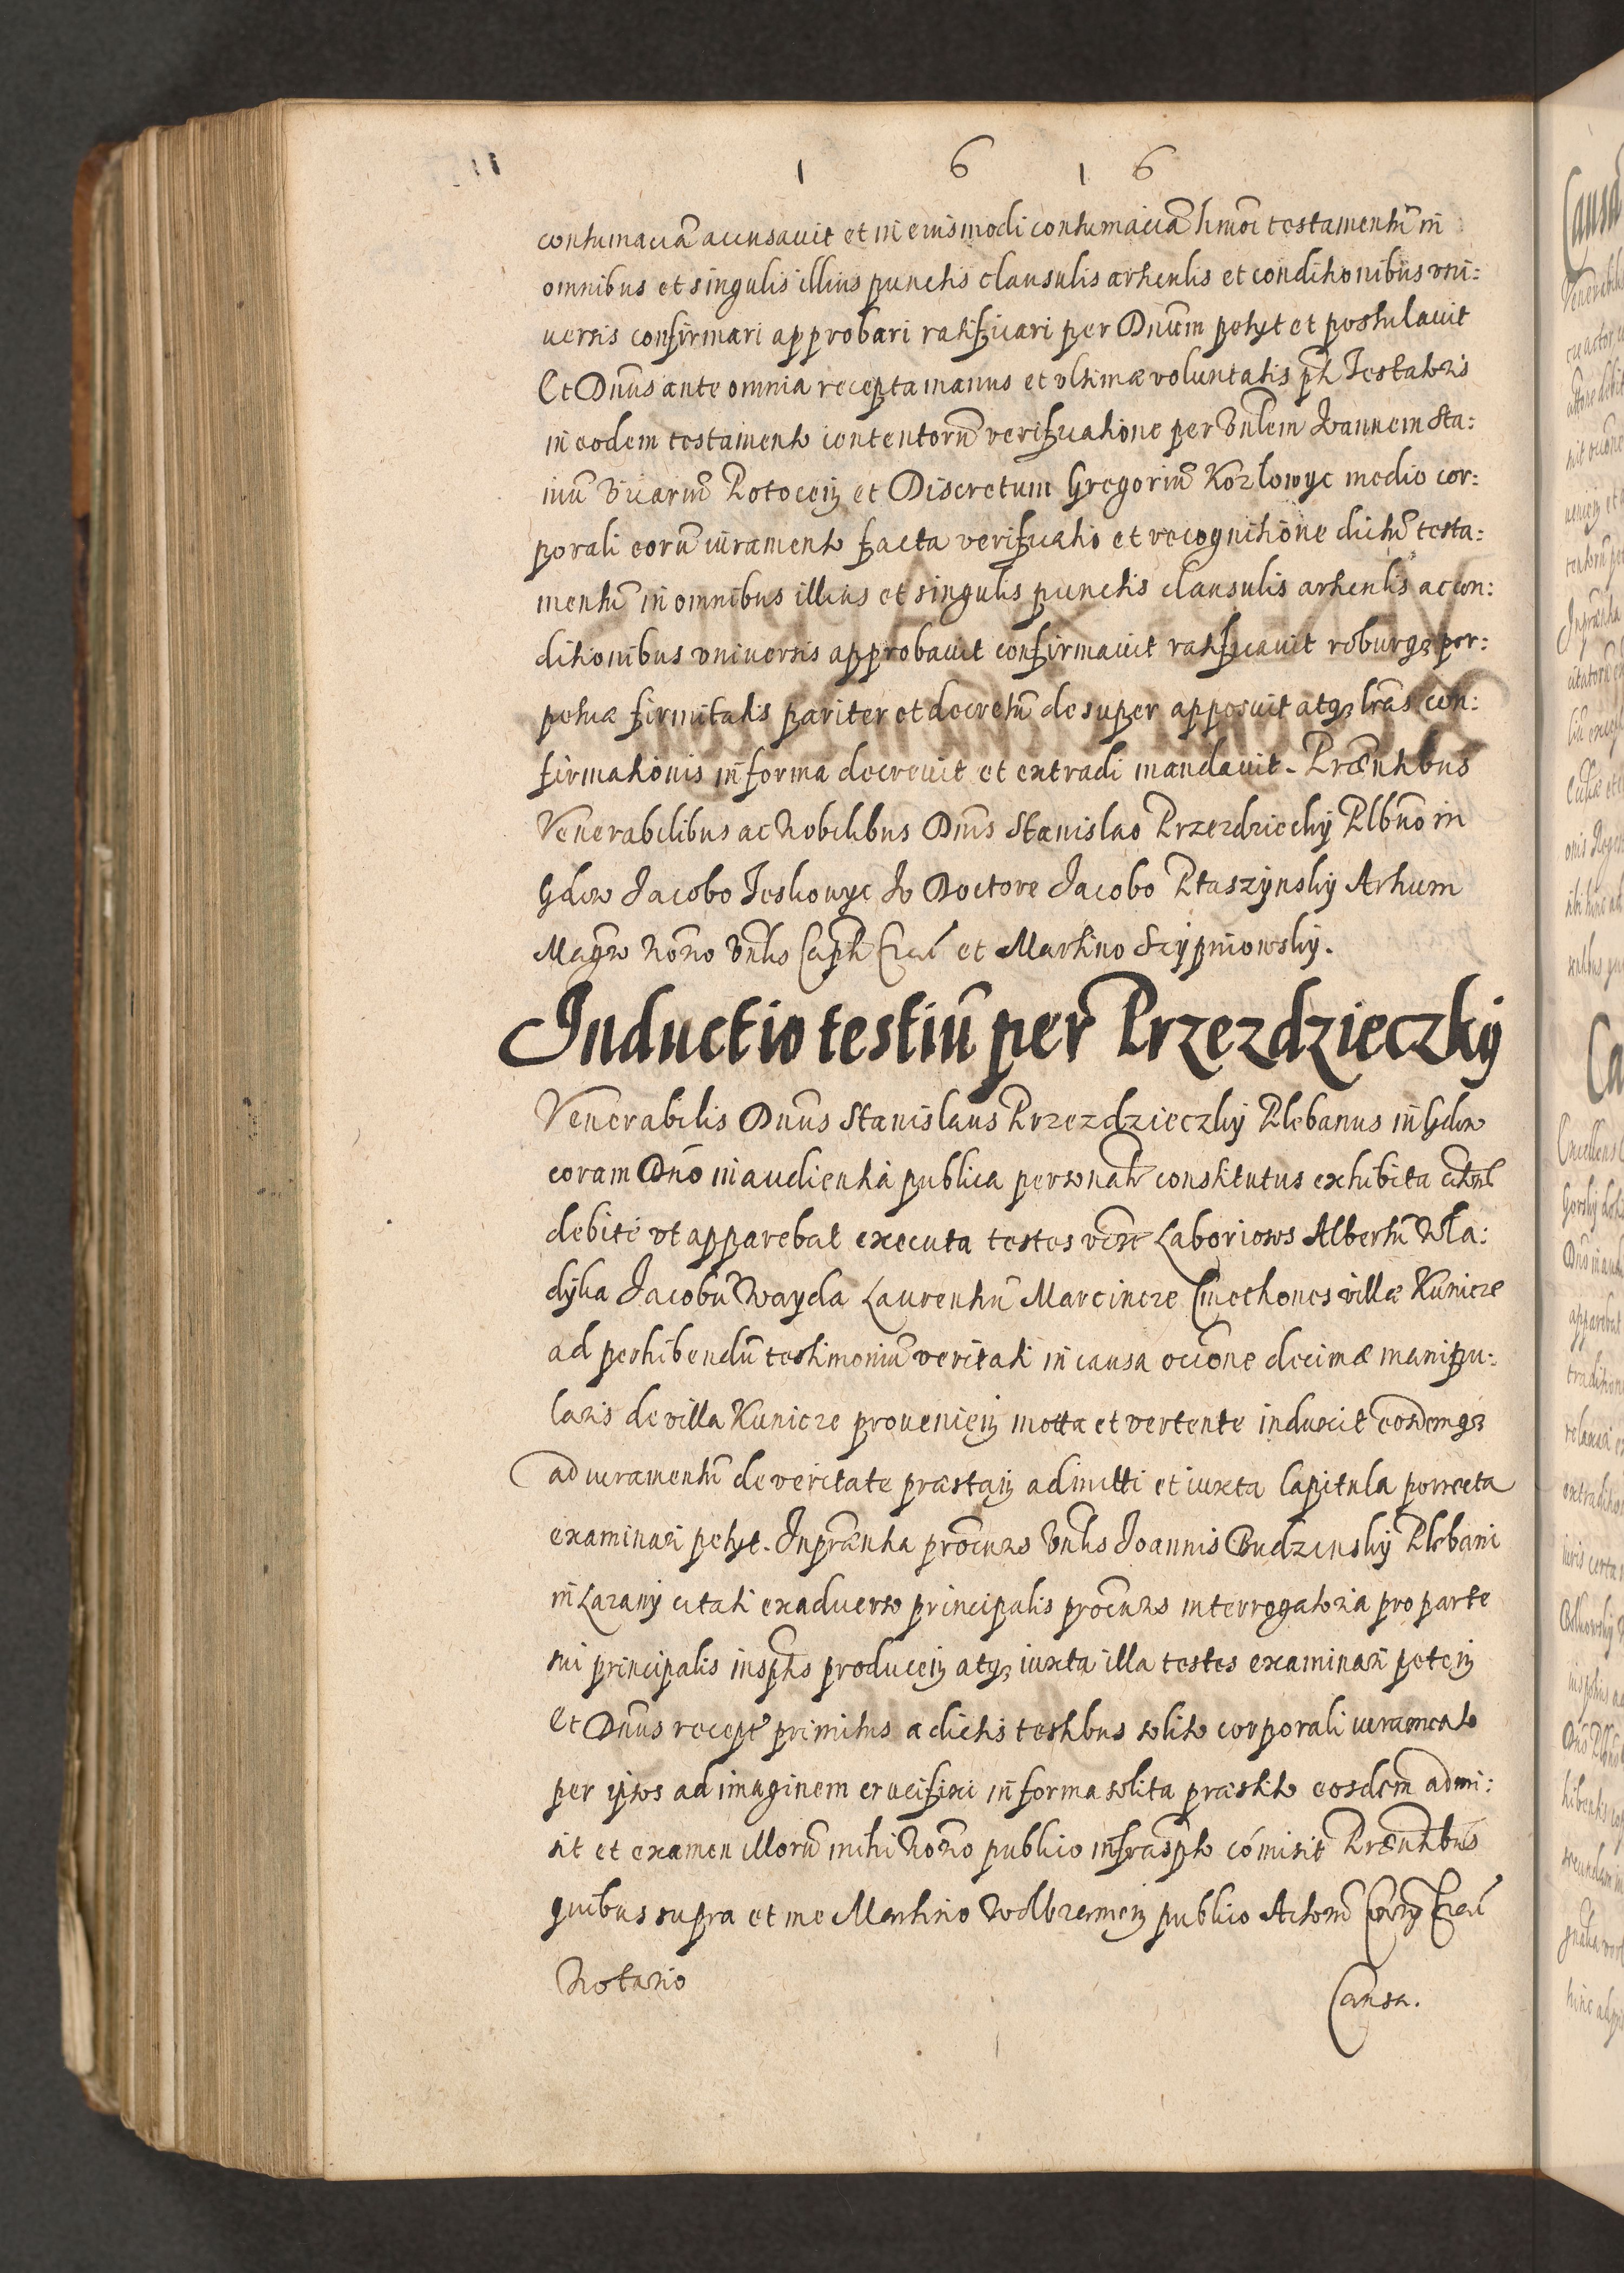 1 6 1 6
contumaciã accusauit et in eiusmodi contumaciã hmõi testamentũ in
omnibus et singulis illius punctis clausulis articulis et conditionibus vni:
uersis confirmari approbari ratificari per Dnũm petyt et postulauit
Et Dnũs ante omnia recepta manus et vltimæ voluntatis Testatoris
in eodem testamento contentorũ verificatione per Vnlem Ioannem Sta:
Vicariũ Potoceñ et Discretum Gregoriũ Kozlowyc medio cor:
porali eorũ iuramento facta verificatio et recognitione dictũ testa:
mentũ in omnibus illius et singulis punctis clausulis articulis ac con:
ditionibus vniuersis approbauit confirmauit ratificauit roburq3 per:
petuæ firmitatis pariter et decretũ desuper apposuit atq3 lrãs con:
firmationis in forma decreuit et extradi mandauit. Præntibus
Venerabilibus ac Nobilibus Dnis Stanislao Przezdziecky Plbño in
Gdow Jacobo Jeskowyc Iv Doctore Jacobo Ptaszynsky Artium
Magro Norio Vnlis Capti Crac et Martino Scypniowsky.
Inductio testiũ per Przezdzieczky
Venerabilis Dnũs Stanislaus Przezdzieczky Plebanus in Gdow
coram Dño in audientia publica personalr constitutus exhibita
debite vt apparebat executa testes Laboriosos Albertũ Wla:
dyka Jacobũ Wayda Laurentiũ Marcincze Cmethones villæ Kunicze
ad perhibendũ testimoniũ veritati in causa ocione decimæ manipu:
laris de villa Kunicze prouenieñ motta et vertente induxit eosdemq3
ad iuramentũ de veritate præstañ admitti et iuxta Capitula porrecta
examinari petyt. In præntia procuris Vnlis Joannis Budzinsky Plebani
in Lazany citati ex aduerso principalis procuris interrogatoria pro parte
sui principalis in sptis produceñ atq3 iuxta illa testes examinari peteñ
Et Dnũs recept primitus a dictis testibus solito corporali iuramento
per ipsos ad imaginem crucifixi in forma solita præstito eosdem admi:
sit et examen illorũ mihi Norio publico infrasptо cõmisit Præntibus
quibus supra et me Martino Wolbrameñ publico Actorũ Crac
Notario
Causa.